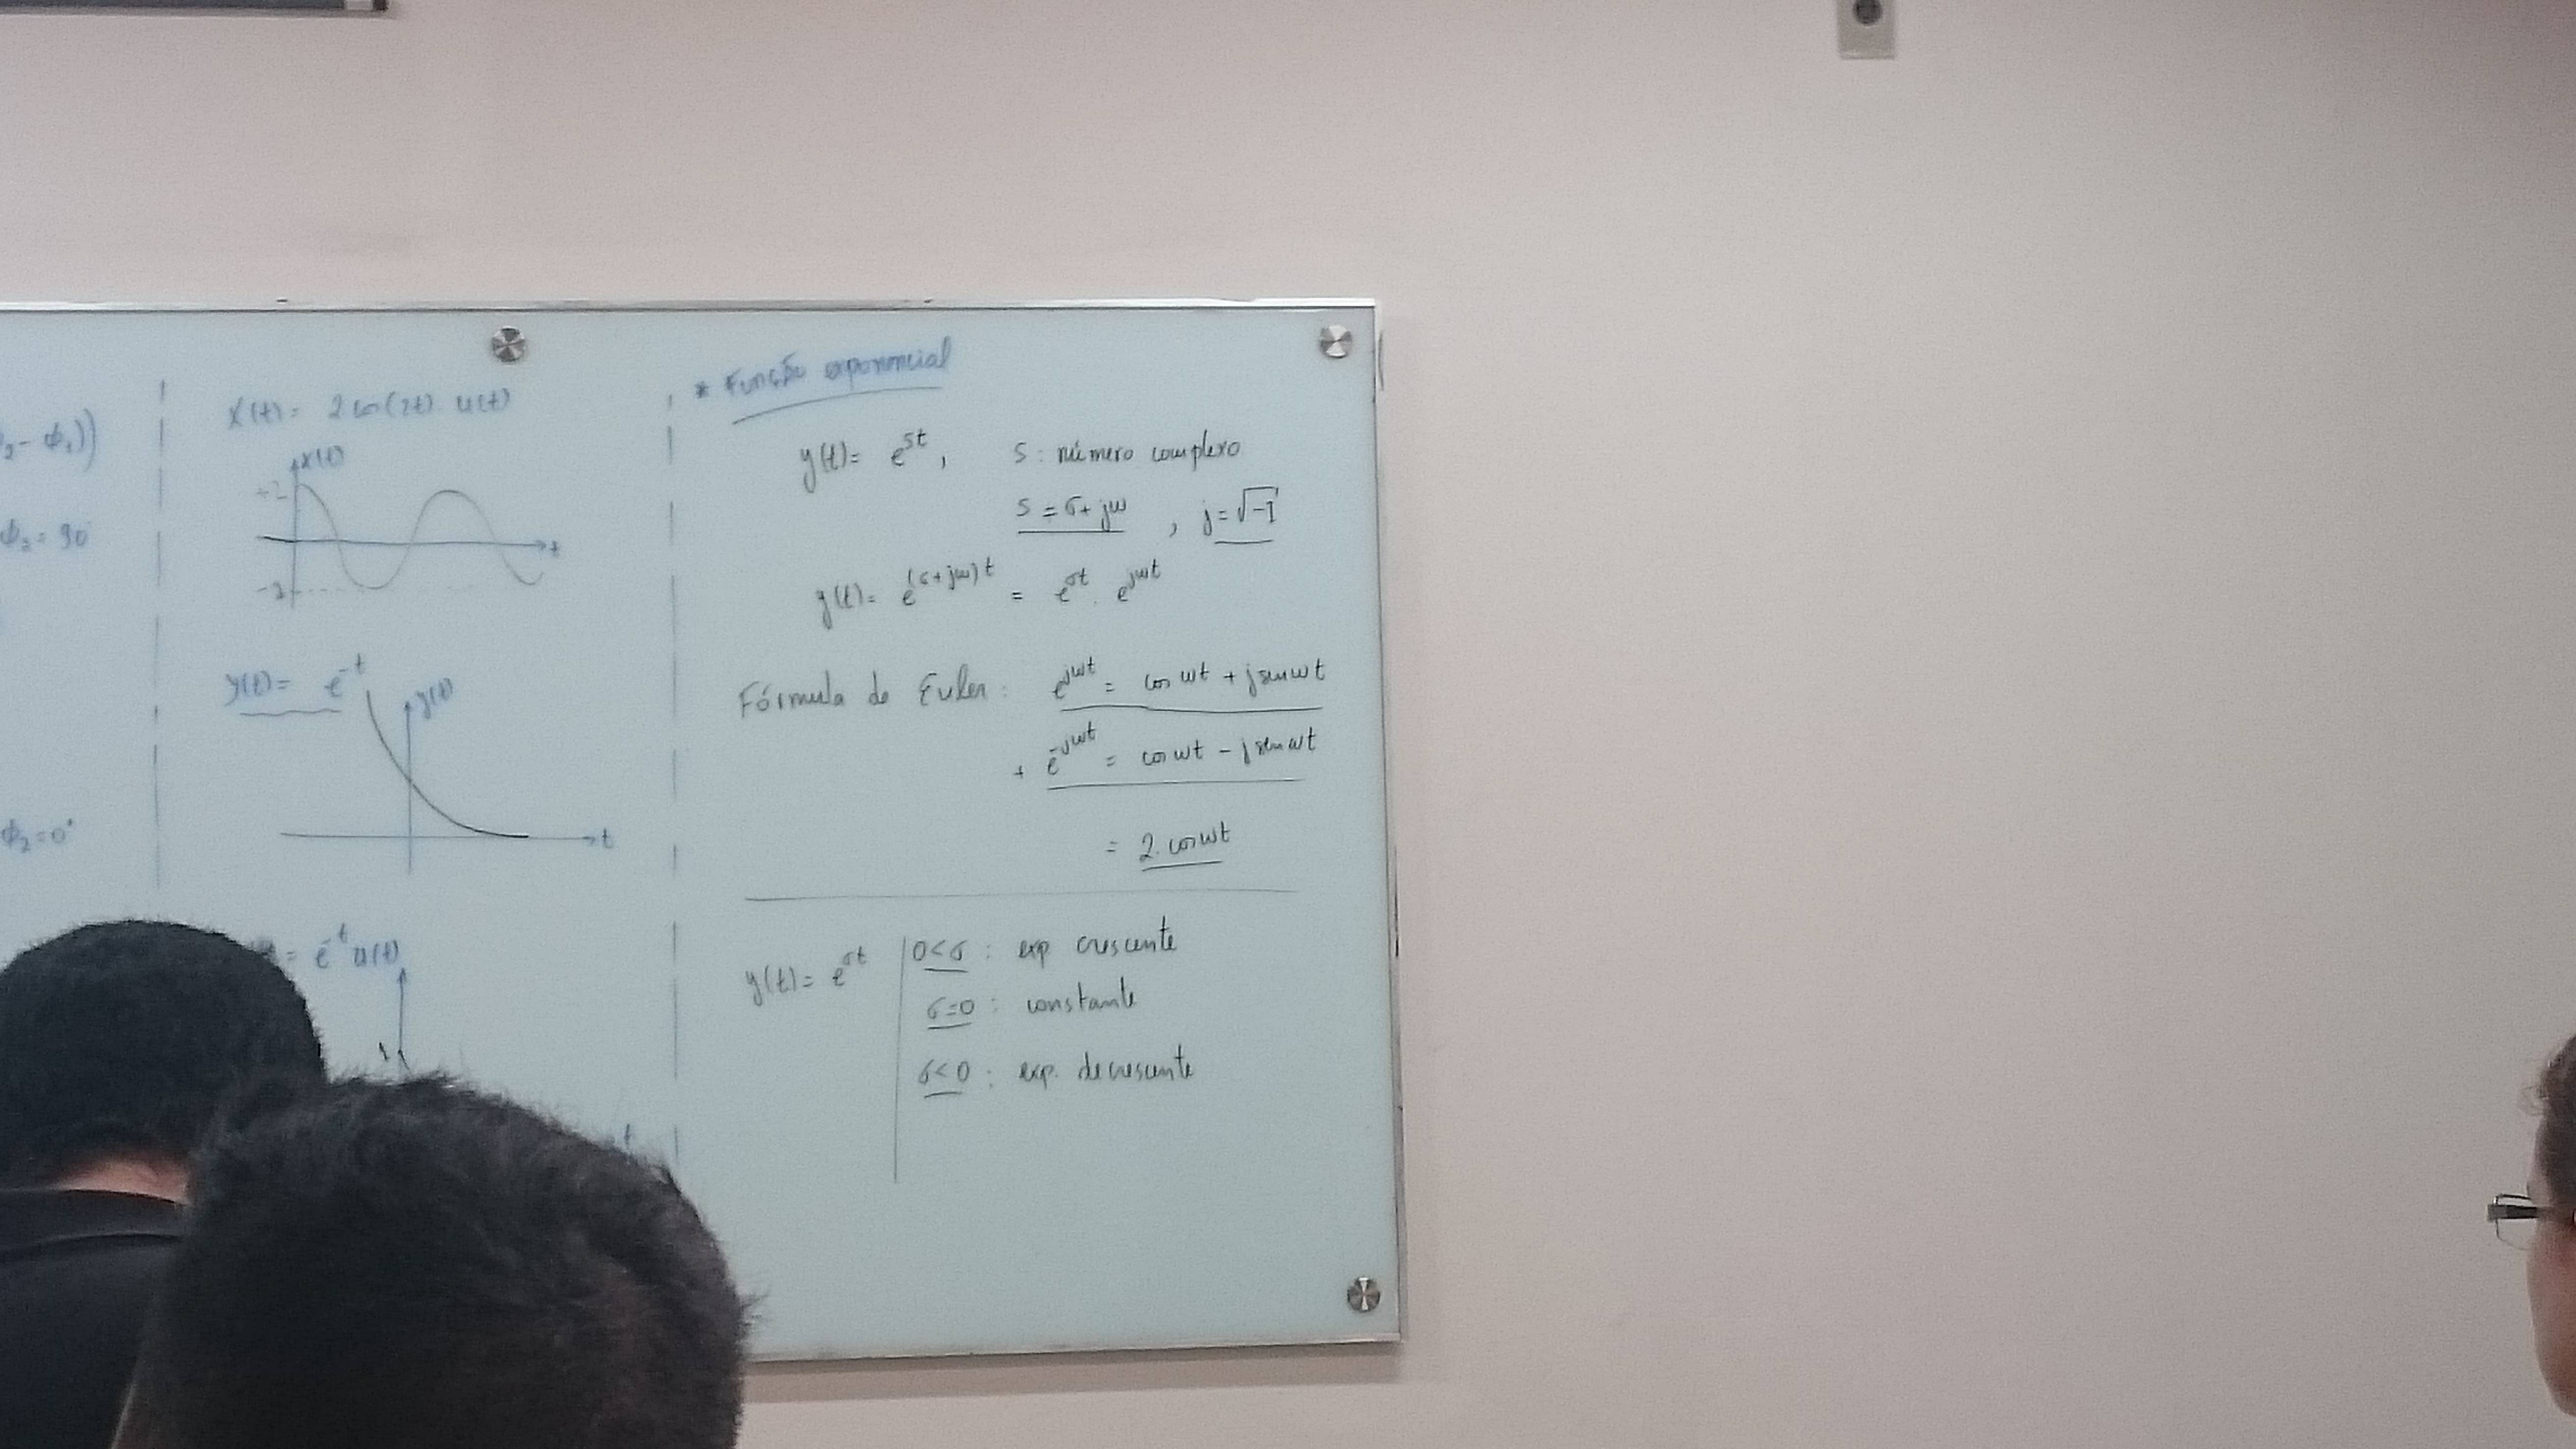 ₂ - ϕ₁))
ϕ₂ = 90°
ϕ₂ = 0°
x(t) = 2 cos(2t) . u(t)
x(t)
+2
t
-2
y(t) = e^{-t}
y(t)
t
= e^{-t} u(t)
1
t
* Função exponencial
y(t) = e^{st} , s : número complexo
s = σ + jω , j = √-1
y(t) = e^{(σ + jω) t} = e^{σt} . e^{jωt}
Fórmula de Euler : e^{jωt} = cos ωt + j sen ωt
+ e^{-jωt} = cos ωt - j sen ωt
= 2. cos ωt
y(t) = e^{σt} | 0 < σ : exp crescente
σ = 0 : constante
σ < 0 : exp. decrescente